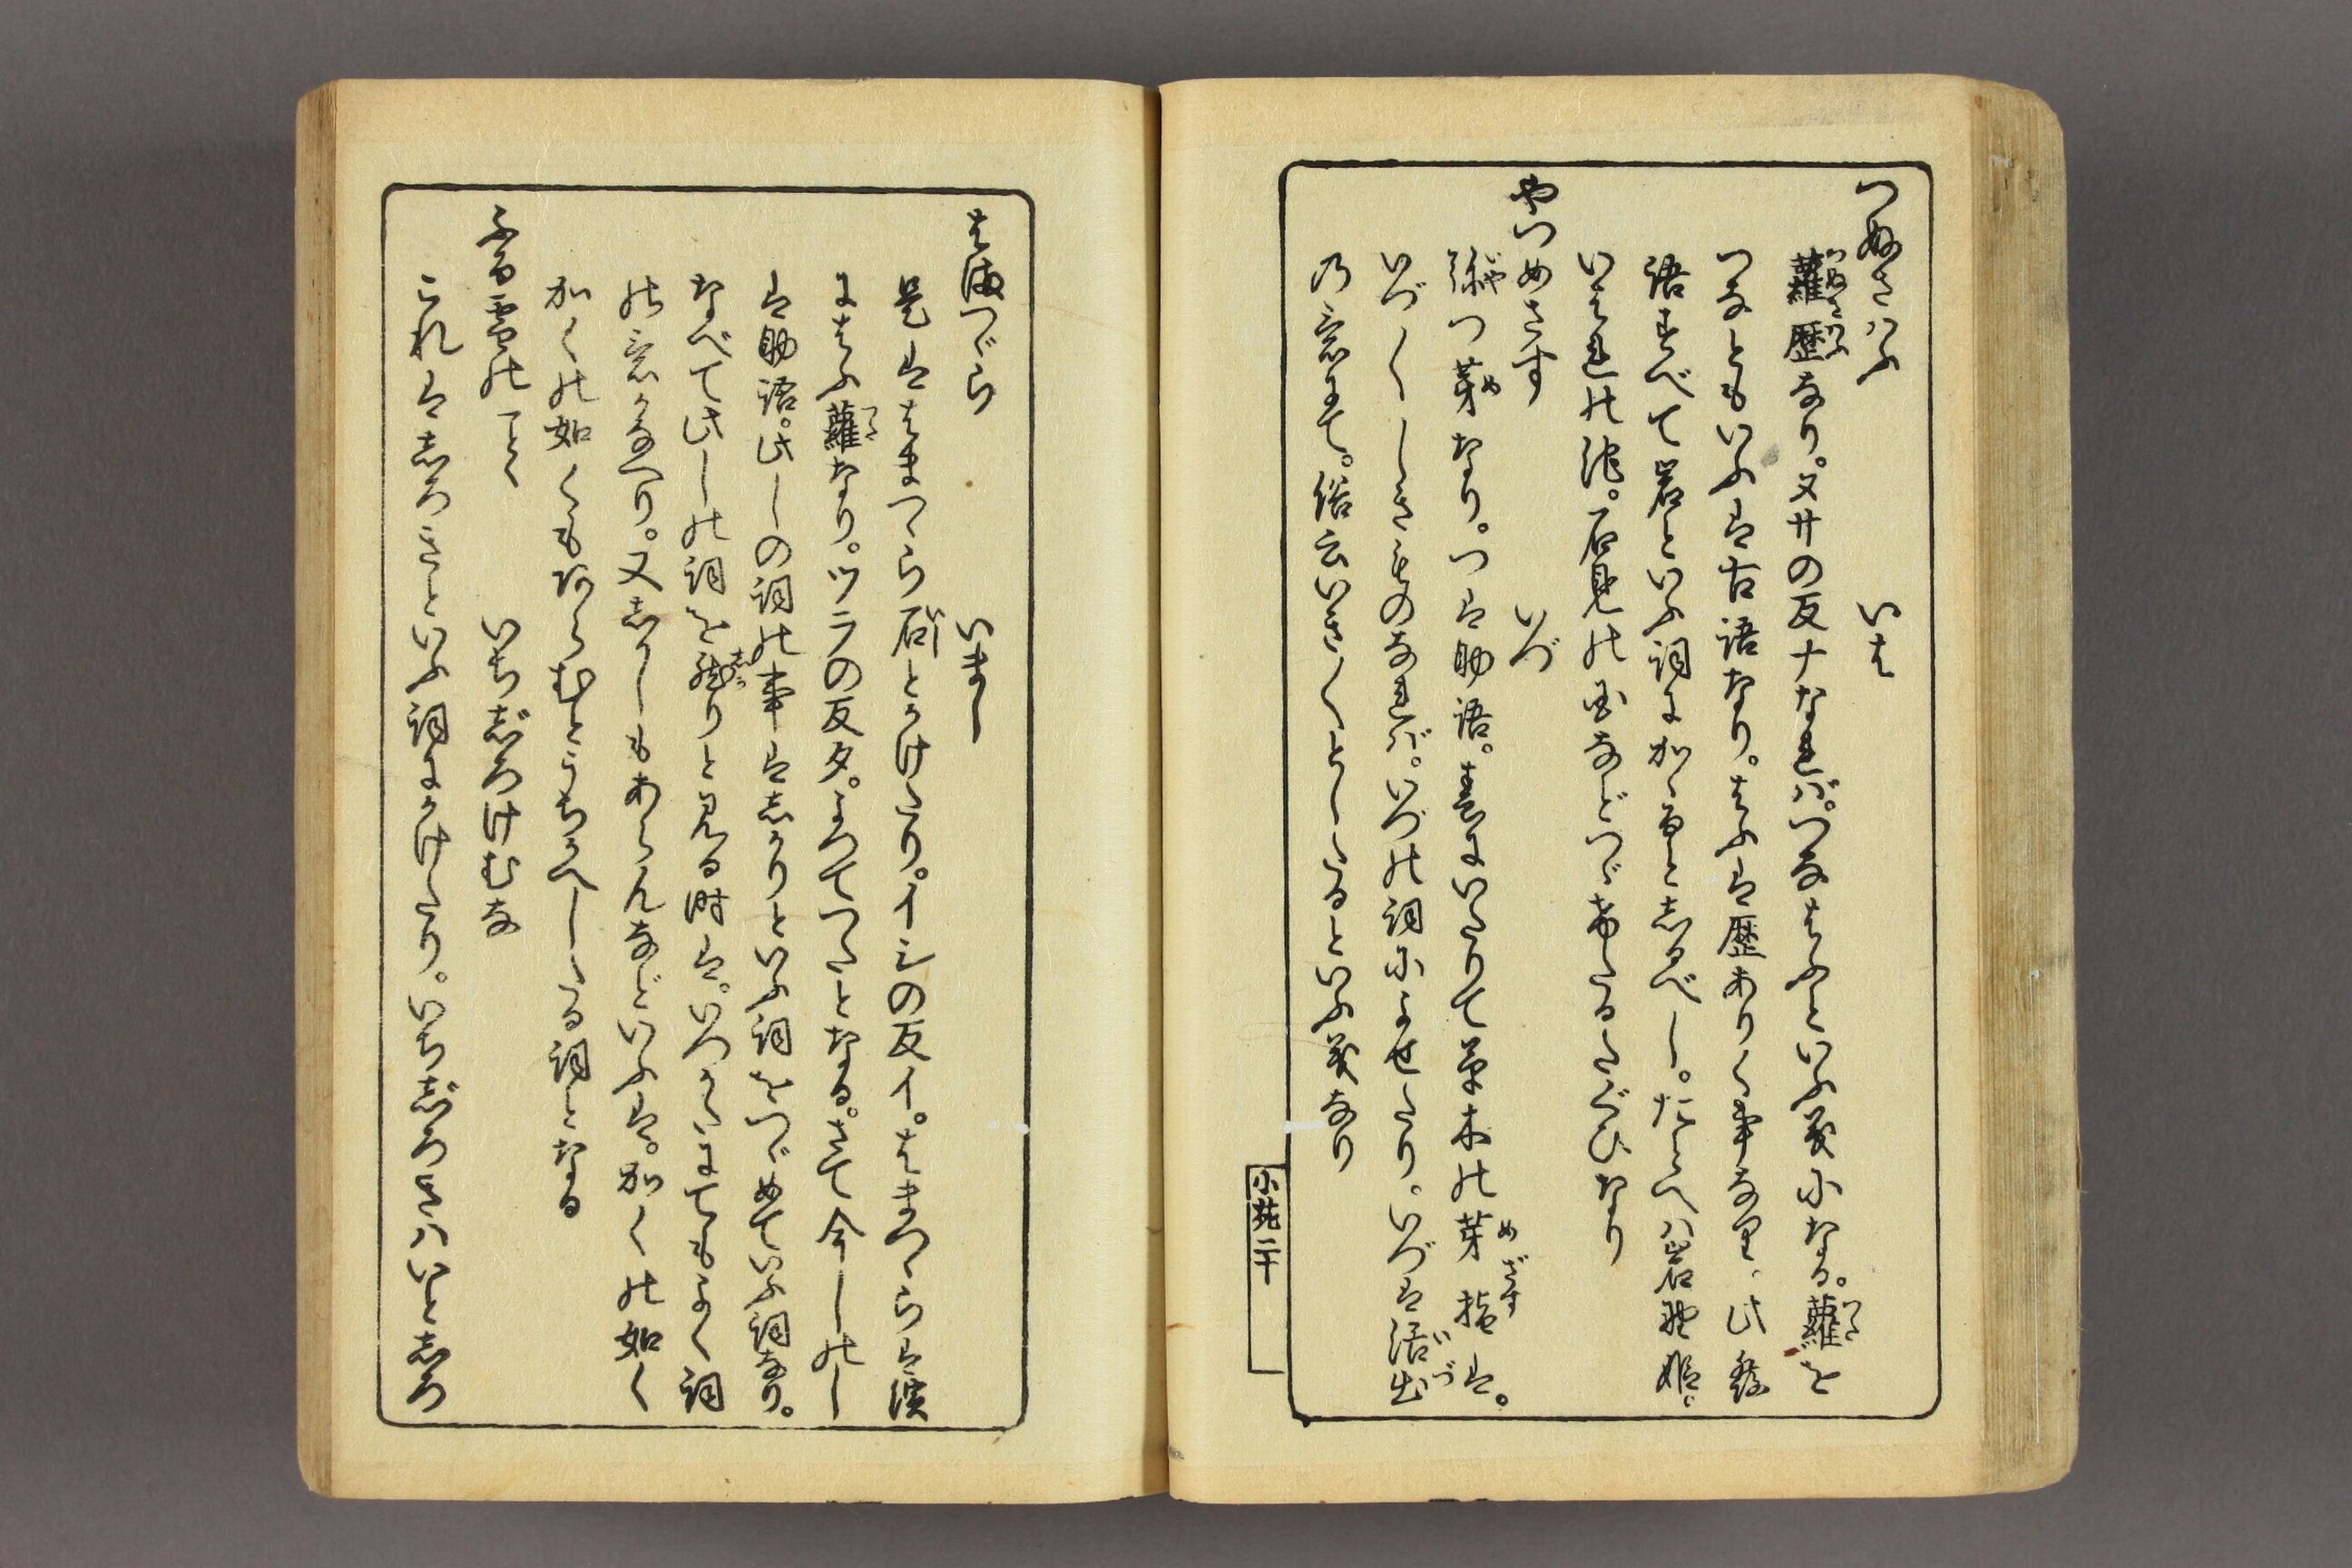 つぬさハふ　いは
蘿歴なり。又サの反ナなれバ。つなはふといふ義になる。蘿を
つなともいふは古語なり。はふは歴ありく事なり。此発
語すべて岩といふ詞にかゝるとしるべし。たとへハ岩野姫。
いはれの池。石見の国などつゞけたるたぐひなり
やつめさす　いづ
弥つ芽なり。つは助語。春にいたりて草木の芽指は。
いづ〱しきものなれバ。いづの詞によせたり。いづは活出
乃意にて。俗云いき〱としたるといふ義なり
小苑二十
はまつゞら　いまし
是ははまつゝら石とかけたり。イシの反イ。はまつゝらは濱
にはふ蘿なり。ツラの反タ。よつてつたとなる。さて今しのし
は助語。此しの詞の事はしかりといふ詞をつゞめていふ詞なり。
なべて此しの詞を然りと見る時は。いつかたにてもよく詞
の意かなへり。又しかしもあらんなどいふは。かくの如く
かくの如くもあらむとうちかへしたる詞となる
ふる雪のことく　いちじろけむな
これはしろきといふ詞にかけたり。いちじろきハいとしろ